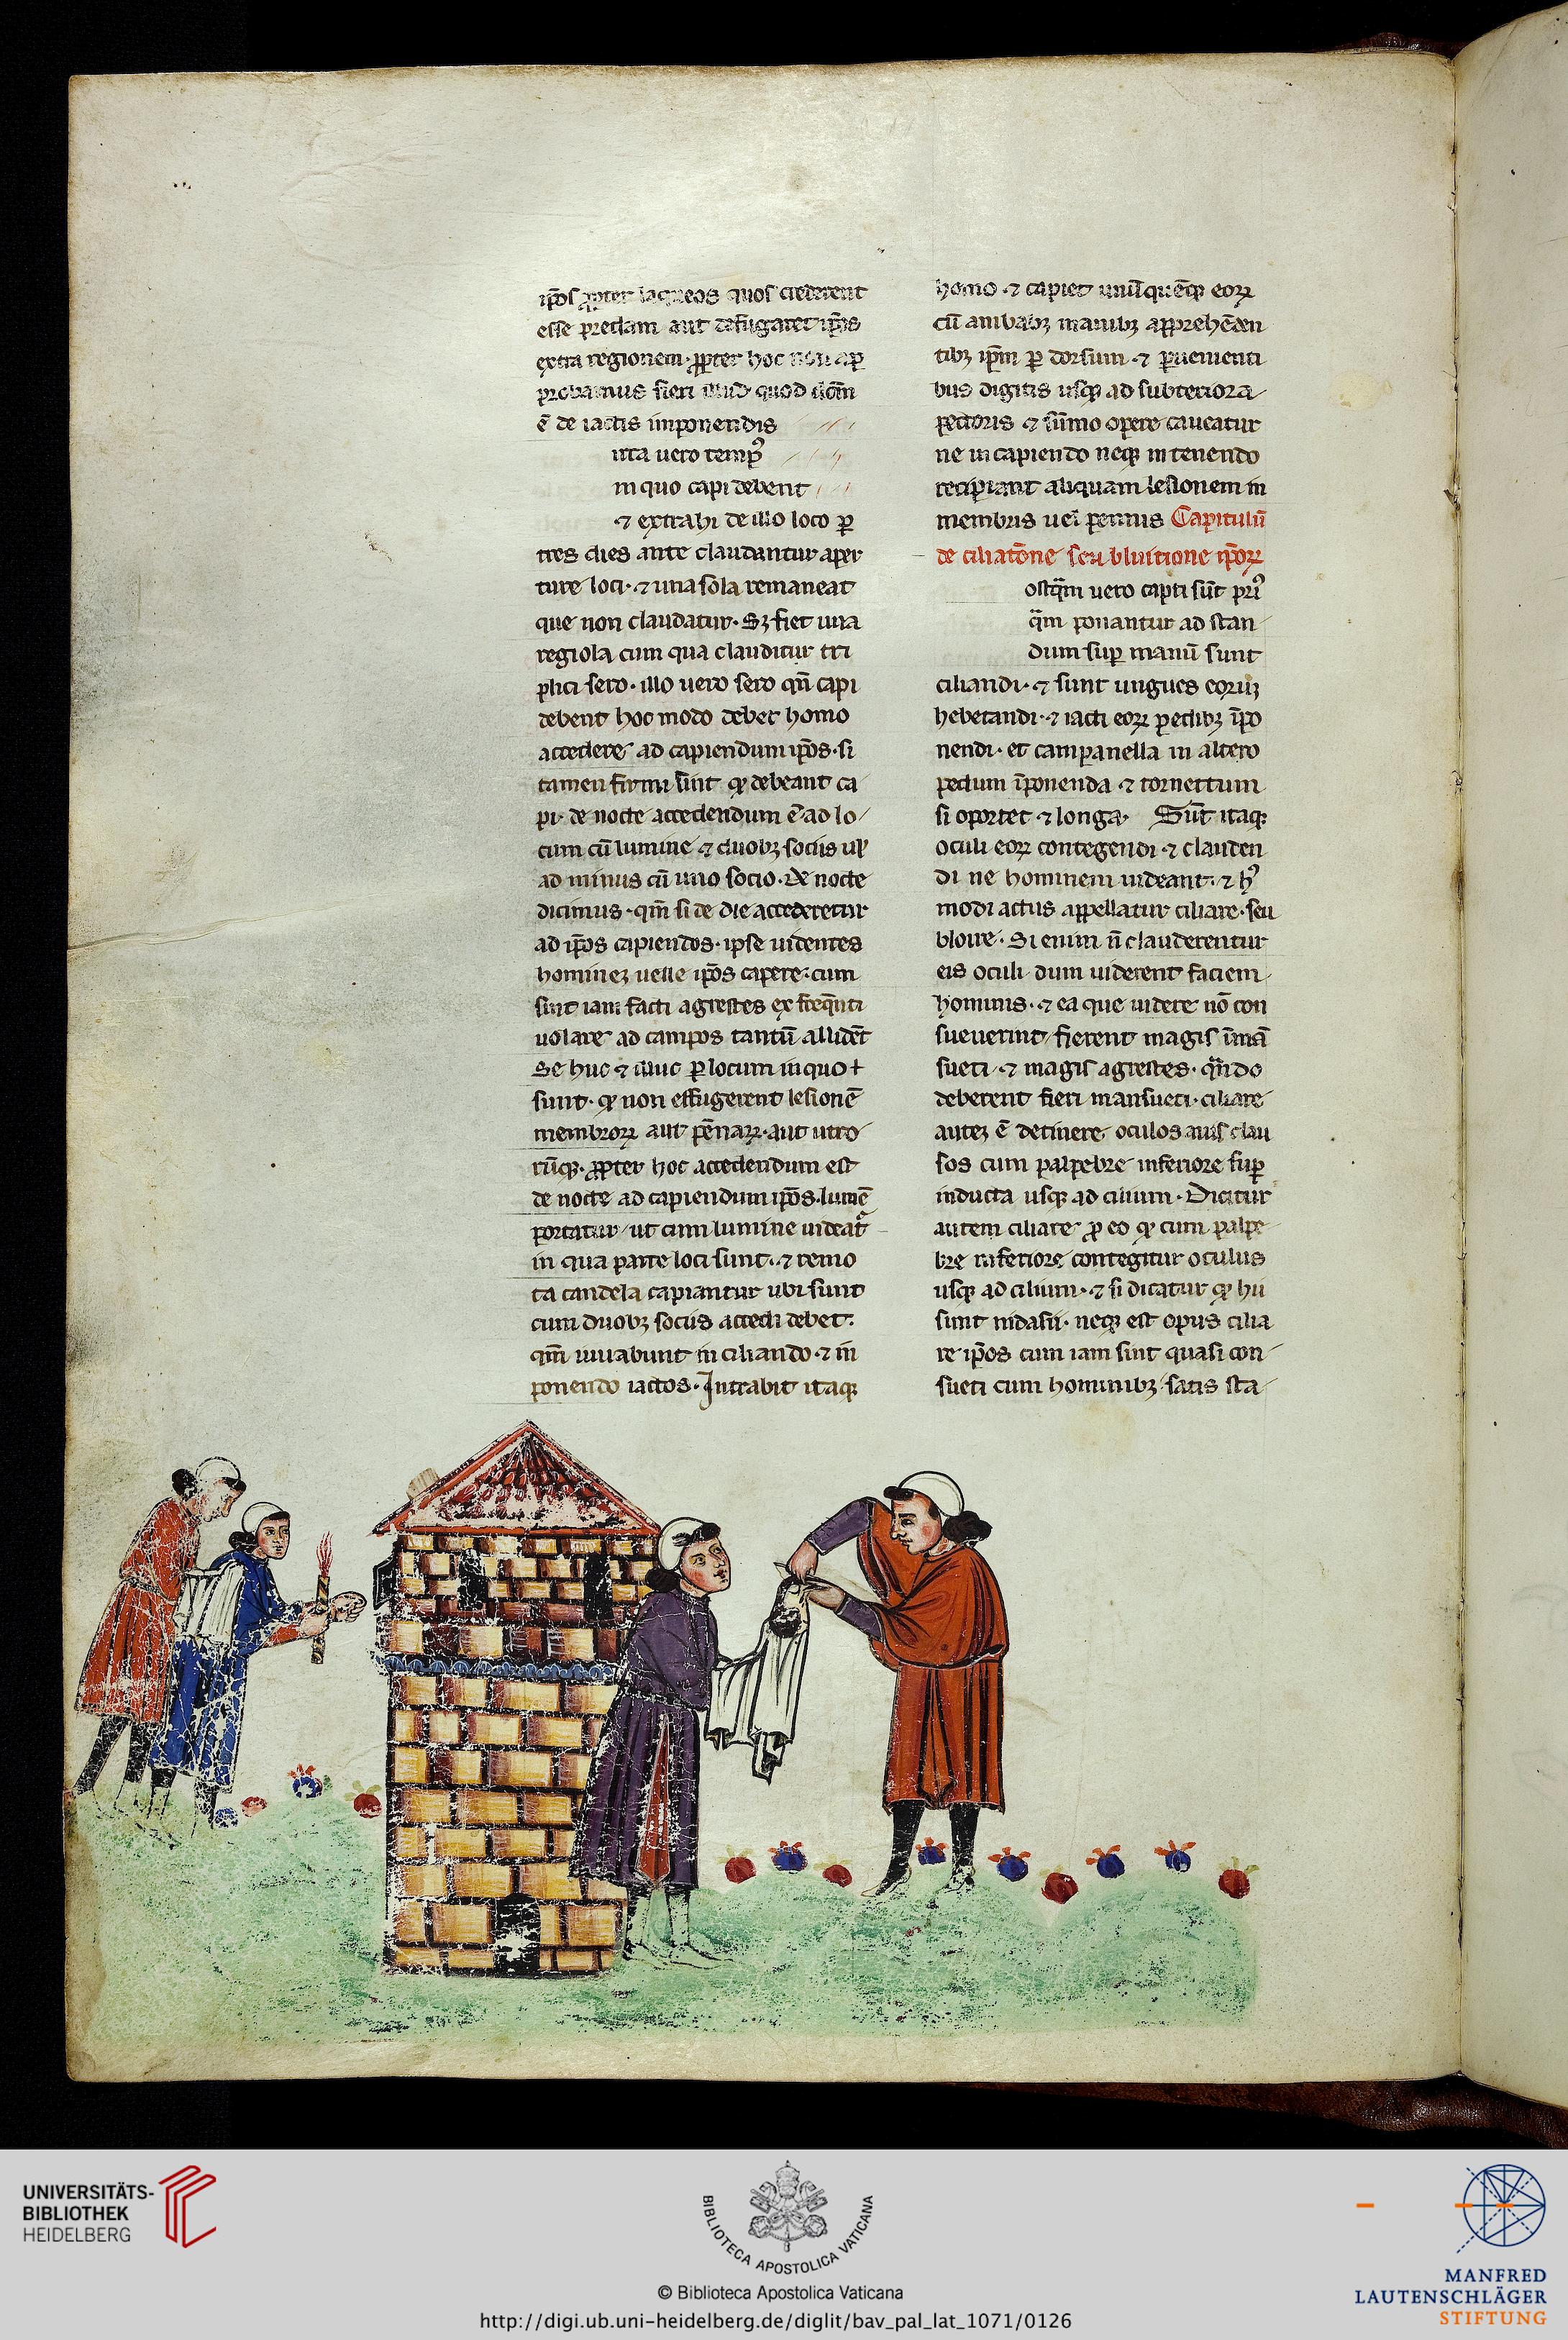 ip̄os ꝓpter laqueos quos crederent
esse p̄reclam aut defugaret ip̄os
extra regionem· ꝓpter hoc non ap
probamus fieri illud quod dcm̄
ē de iactis imponendis
uta uero temp᷒
in quo capi debent
⁊ extrahi de illo loco ꝑ
tres dies ante claudantur aper
ture loci· ⁊ una sola remaneat
que non claudatur· Sꝫ fiet una
regiola cum qua clauditur tri
plici sero· illo uero sero qn̄ capi
debent hoc modo debet homo
accedere ad capiendum ip̄os· si
tamen firmi sint ꝙ debeant ca
pi· de nocte accedendum ē ad lo
cum cū lumine ⁊ duobꝫ sociis ul̕
ad minus cū uno socio· De nocte
dicimus· qm̄ si de die accederetur
ad ip̄os capiendos· ipse uidentes
homineꝫ uelle ip̄os capere: cum
sint iam facti agrestes ex freq̄nti
uolare ad campos tantū alliderēt
se huc ⁊ illuc ꝑ locum in quo +
sunt· ꝙ non effugerent lesionē
membroꝝ aut pēnaꝝ· aut utro
rūqꝫ· ꝓpter hoc accedendum est
de nocte ad capiendum ip̄os· lumē
portatur ut cum lumine uideat᷑
in qua parte loci sunt· ⁊ remo
ta candela capiantur ubi sunt
cum duobꝫ sociis accedi debet:
qm̄ iuuabunt in ciliando· ⁊ in
ponendo iactos· Intrabit itaqꝫ
homo· ⁊ capiet unūquēqꝫ eoꝝ
cū ambabꝫ manibꝫ apprehēden
tibꝫ ip̄m ꝑ dorsum· ⁊ ꝑuenienti
bus digitis usqꝫ ad subteriora
pectoris ⁊ sūmo opere caueatur
ne in capiendo neqꝫ in tenendo
recipiant aliquam lesionem in
membris uel pennis Capitulū
de ciliatōne seu bluitione ip̄oꝝ
ostq̄m uero capti sūt pri᷒
q̄m ponantur ad stan
dum suꝑ manū sunt
ciliandi· ⁊ sunt ungues eoruꝫ
hebetandi· ⁊ iacti eoꝝ pedibꝫ īpo
nendi· et campanella in altero
pedum īponenda ⁊ tornettum
si oportet ⁊ longa· Sūt itaqꝫ
oculi eoꝝ contegendi ⁊ clauden
di ne hominem uideant· ⁊ h᷒
modi actus appellatur ciliare· seu
bloire· Si enim n̄ clauderentur
eis oculi dum uiderent faciem
hominis· ⁊ ea que uidere nō con
sueuerint fierent magis īmā
sueti· ⁊ magis agrestes· qn̄do
deberent fieri mansueti· ciliare
auteꝫ ē detinere oculos auis clau
sos cum palpebre inferiore suꝑ
inducta usqꝫ ad cilium· Dicitur
autem ciliare ꝓ eo ꝙ cum palpe
bre inferiore contegitur oculus
usqꝫ ad cilium· ⁊ si dicatur ꝙ hii
sunt nidasii· neqꝫ est opus cilia
re ip̄os cum iam sint quasi con
sueti cum hominibꝫ satis sta
UNIVERSITÄTS-
BIBLIOTHEK
HEIDELBERG
BIBLIOTECA APOSTOLICA VATICANA
© Biblioteca Apostolica Vaticana
http://digi.ub.uni-heidelberg.de/diglit/bav_pal_lat_1071/0126
MANFRED
LAUTENSCHLÄGER
STIFTUNG